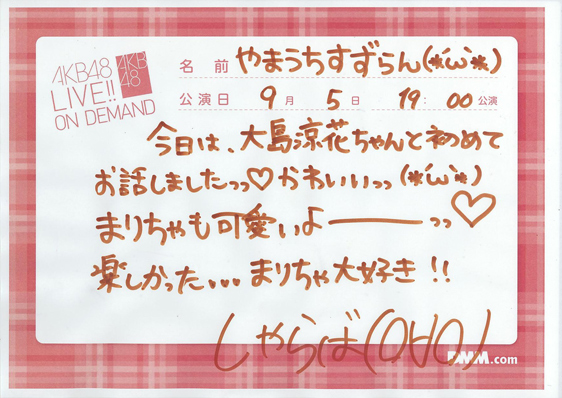 AKB48
LIVE!!
ON DEMAND
AKB
48
名前 やまうちすずらん(*´ω`*)
公演日 9月 5日 19:00公演
今日は、大島涼花ちゃんと初めて
お話しましたっっ♡かわいいっっ(*´ω`*)
まりちゃも可愛いよーーっっ♡
楽しかった...まりちゃ大好き!!
しゃらば(OVO)
DMM.com